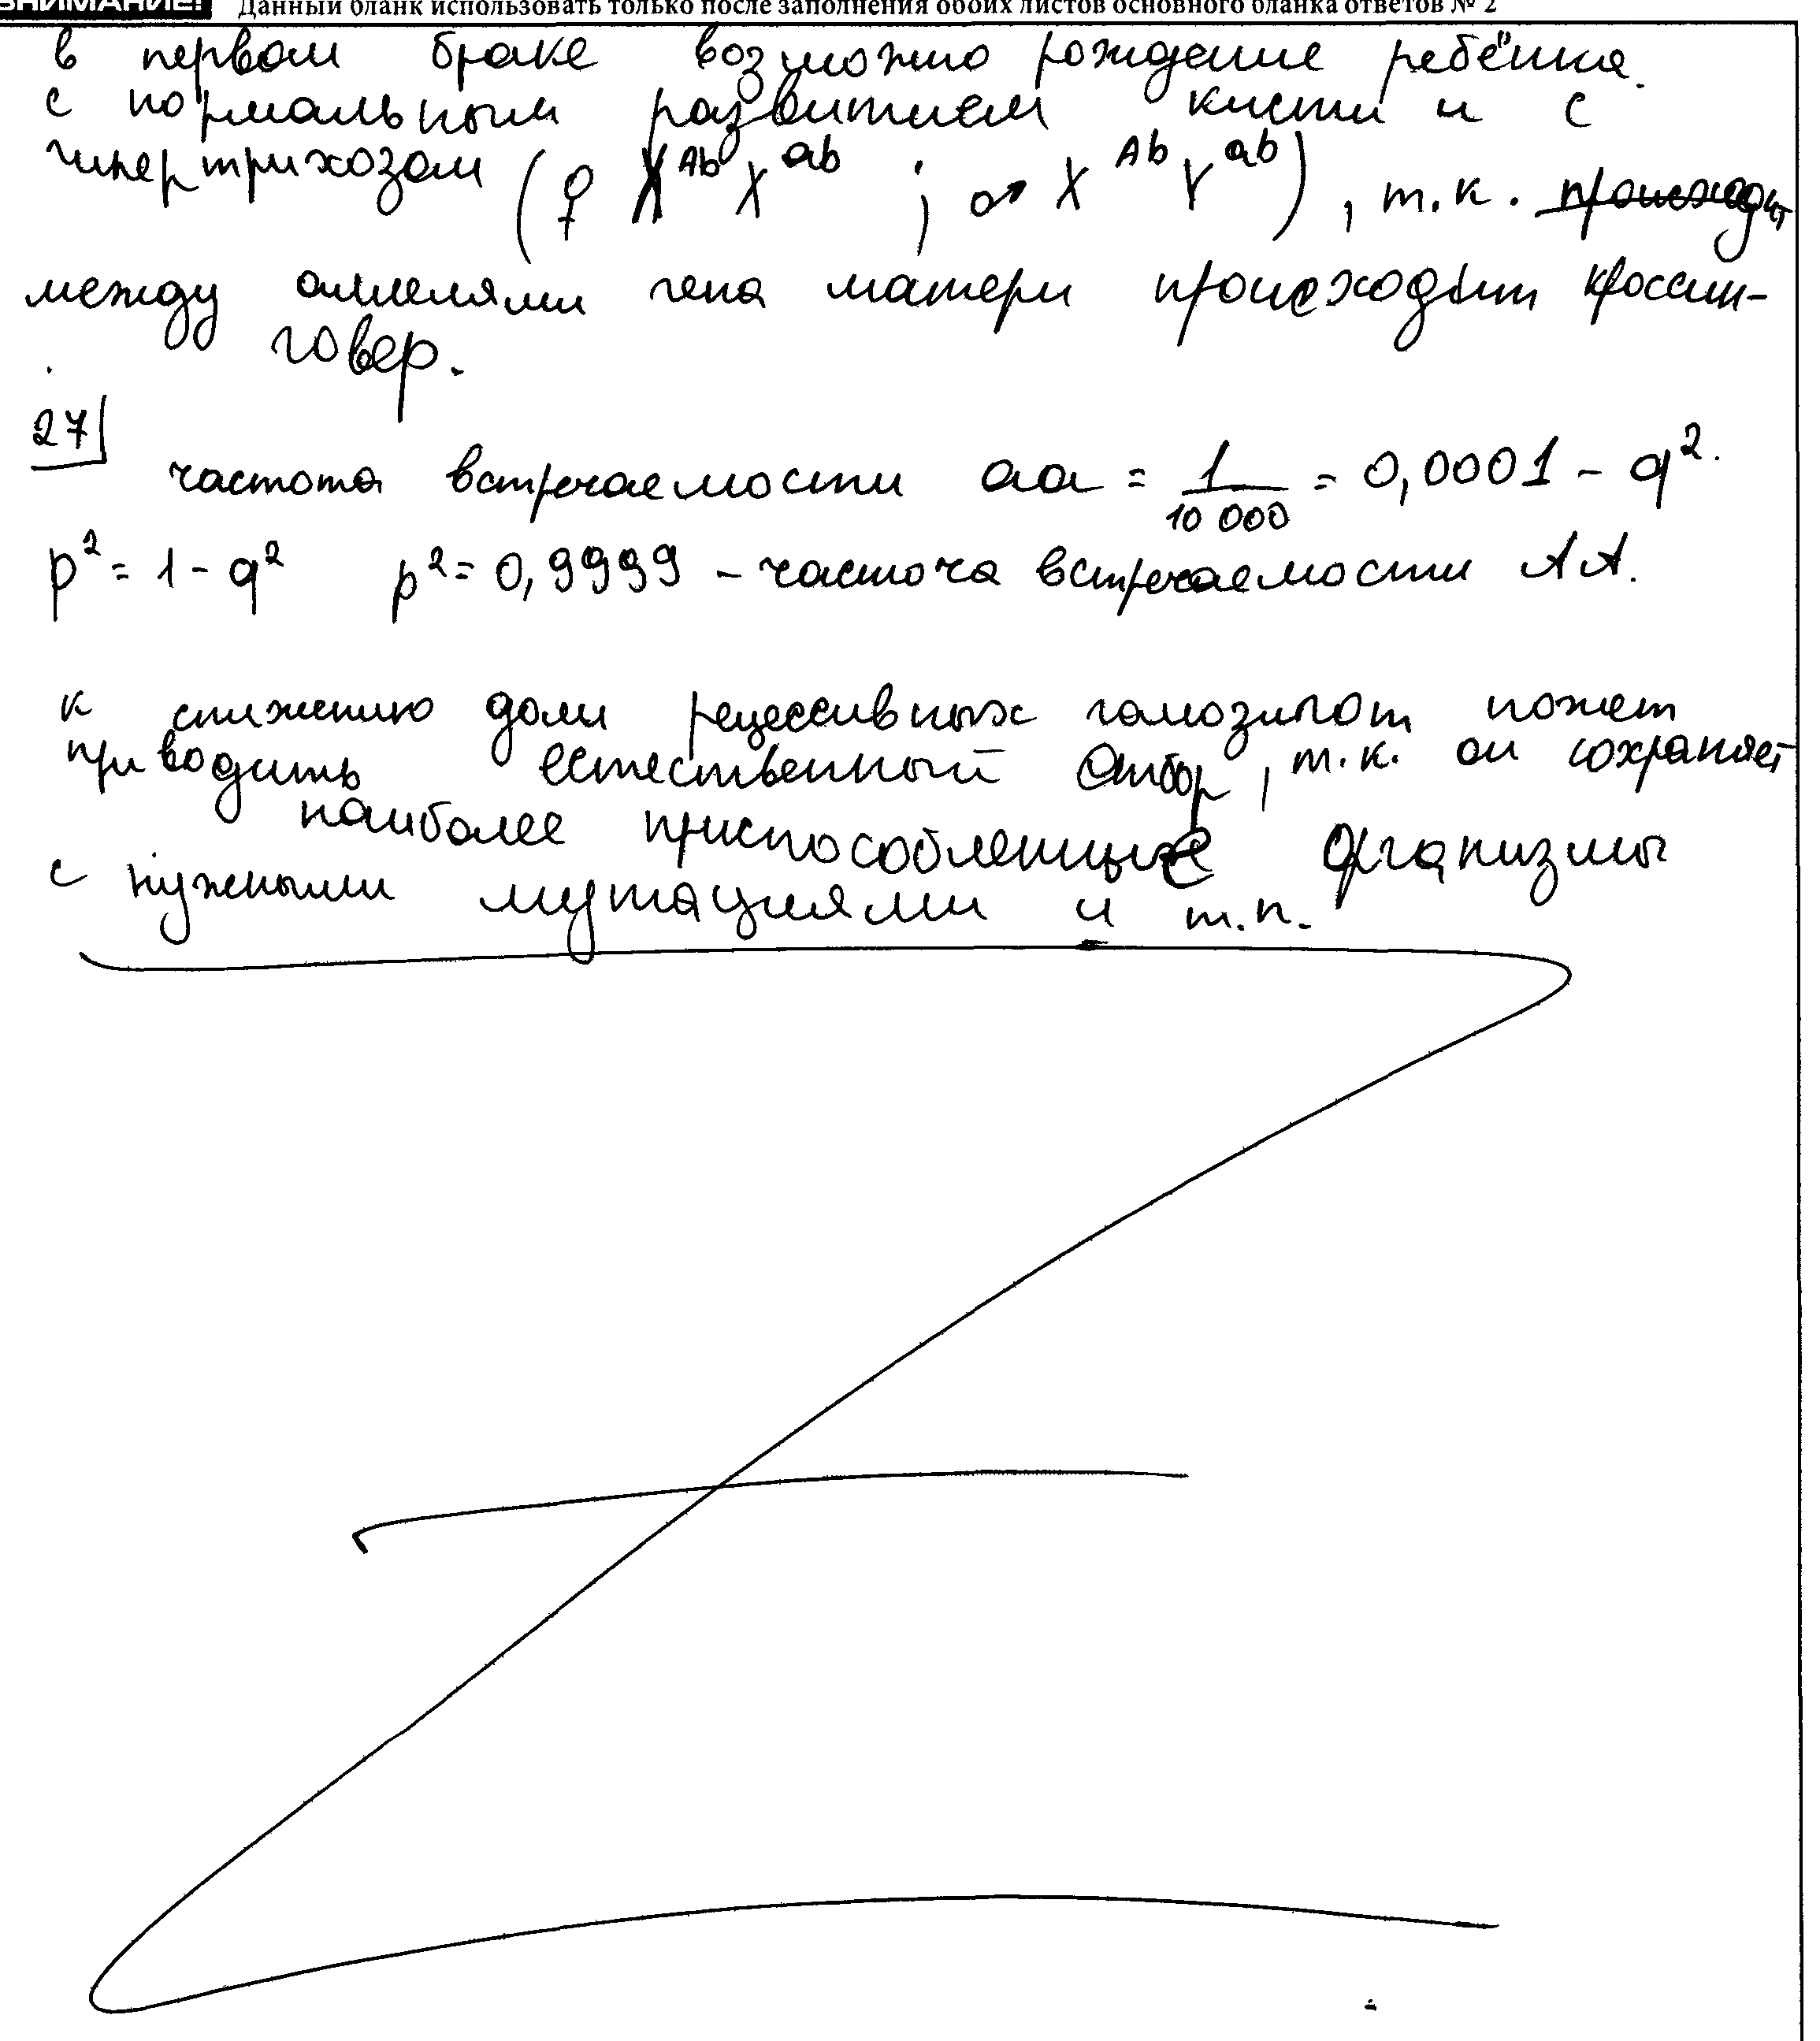 ВНИМАНИЕ! Данный бланк использовать только после заполнения обоих листов основного бланка ответов № 2
в первом браке возможно рождение ребёнка
с нормальным развитием кисти и с
гипертрихозом (♀ X^Ab X^ab ; ♂ X^Ab Y^ab), т.к. происходит
между аллелями гена матери происходит кроссин-
говер.
27
частота встречаемости aa = 1/10 000 = 0,0001 - q².
p² = 1 - q² p² = 0,9999 - частота встречаемости AA.
к снижению доли рецессивных гомозигот может
приводить естественный отбор, т.к. он сохраняет
наиболее приспособленные организмы
с нужными мутациями и т.п.